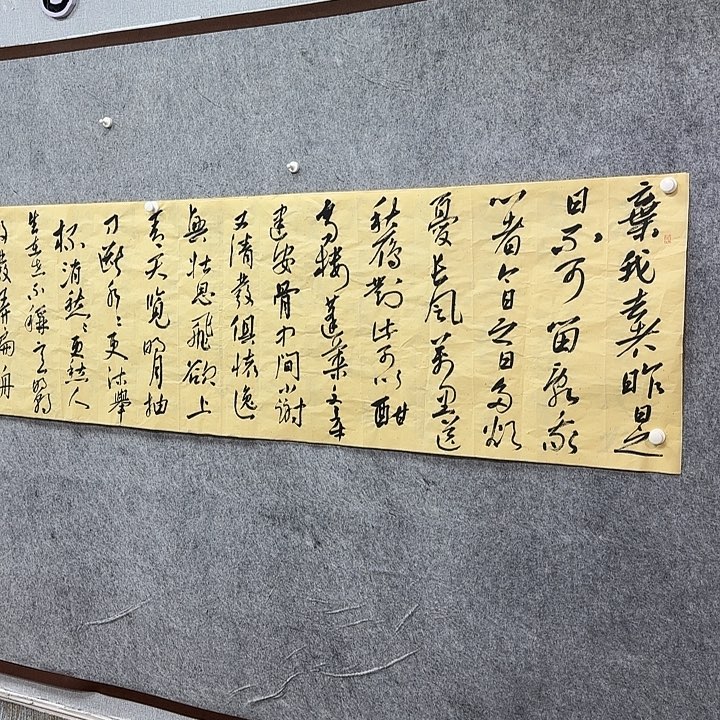 棄我去者昨日之
日不可留亂我
心者今日之日多煩
憂長風萬里送
秋雁對此可以酣
高樓蓬萊文章
建安骨中間小謝
又清發俱懷逸
興壯思飛欲上
青天覽明月抽
刀斷水〻更流舉
杯消愁〻更愁人
生在世不稱意明朝
散發弄扁舟